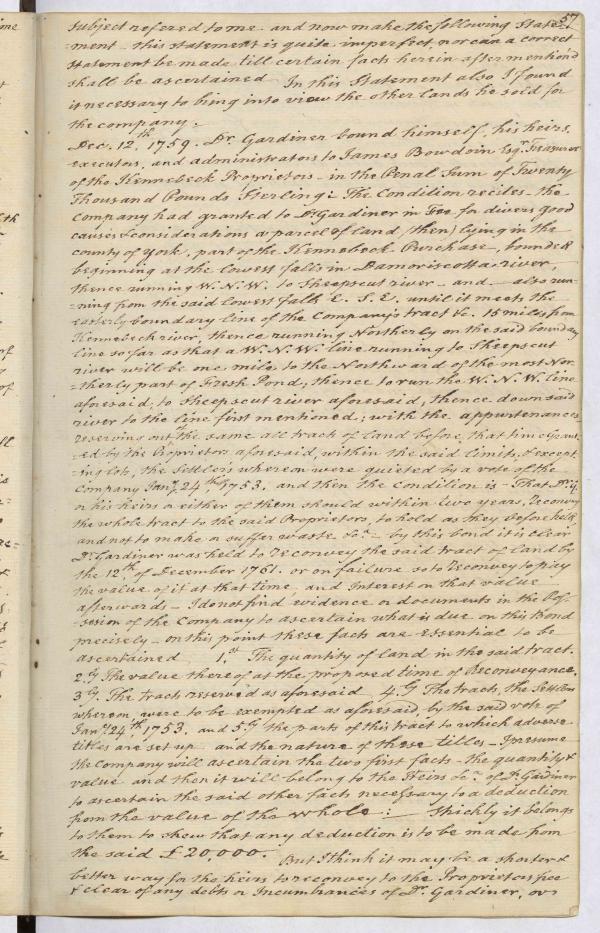 57
subject refered to me and now make the following state-
ment - this statement is quite imperfect, nor can a correct
statement be made till certain facts herein after mention'd
shall be ascertained In this Statement also I found
it necessary to bring into view the other lands he sold for
the company.
Dec. 12th 1759. Dr. Gardiner bound himself, his heirs,
executors, and administrators to James Bowdoin Esqr. Treasurer
of the Kennebeck Proprietors in the Penal Sum of Twenty
Thousand Pounds Sterling: The Condition recites - the
Company had granted to Dr. Gardiner in Fee for divers good
causes & considerations a parcel of land, (then) lying in the
county of York, part of the Kennebeck Purchase, bounded
beginning at the lowest falls in Damariscotta river,
thence running W.N.W. to Sheepscut river - and - also run-
ning from the said lowest falls E. S. E. until it meets the
easterly boundary line of the Company's tract &c. 15 miles from
Kennebeck river, thence running Northerly on the said boundary
line so far as that a W. N. W. line running to Sheepscut
river will be one mile to the Northward of the most Nor-
therly part of Fresh Pond, thence to run the W. N. W. line
aforesaid, to Sheepscut river aforesaid, thence down said
river to the line first mentioned; with the appurtenances,
reserving out of the same all tracts of land before that time Grant-
ed by the Proprietors aforesaid, within the said limits, & except-
ing lots, the Settlers whereon were quieted by a vote of the
Company Jany. 24th, 1753. and then the condition is - That Dr. G.
or his heirs or either of them should within two years, reconvey
the whole tract to the said Proprietors, to hold as they before held
and not to make or suffer waste &c. - by this bond it is clear
Dr. Gardiner was held to reconvey the said tract of land by
the 12th of December 1761. or on failure so to reconvey to pay
the value of it at that time, and Interest on that value
afterwards - I do not find evidence or documents in the Pos-
session of the Company to ascertain what is due on this Bond
precisely - on this point these facts are essential to be
ascertained 1.st The quantity of land in the said tract.
2.ly The value thereof at the proposed time of Reconveyance.
3.ly The tracts reserved as aforesaid 4.ly The tracts, the Settlers
whereon, were to be exempted as aforesaid, by the said vote of
Jany. 24th, 1753. and 5.ly the parts of this tract to which adverse
titles are set up and the nature of these titles - I presume
the Company will ascertain the two first facts - the quantity &
value and then it will belong to the Heirs &c. of Dr. Gardiner
to ascertain the said other facts necessary to a deduction
from the value of the whole: Strickly it belongs
to them to shew that any deduction is to be made from
the said £20,000. But I think it may be a shorter &
better way for the heirs to reconvey to the Proprietors free
& clear of any debts or Incumbrances of Dr. Gardiner, or